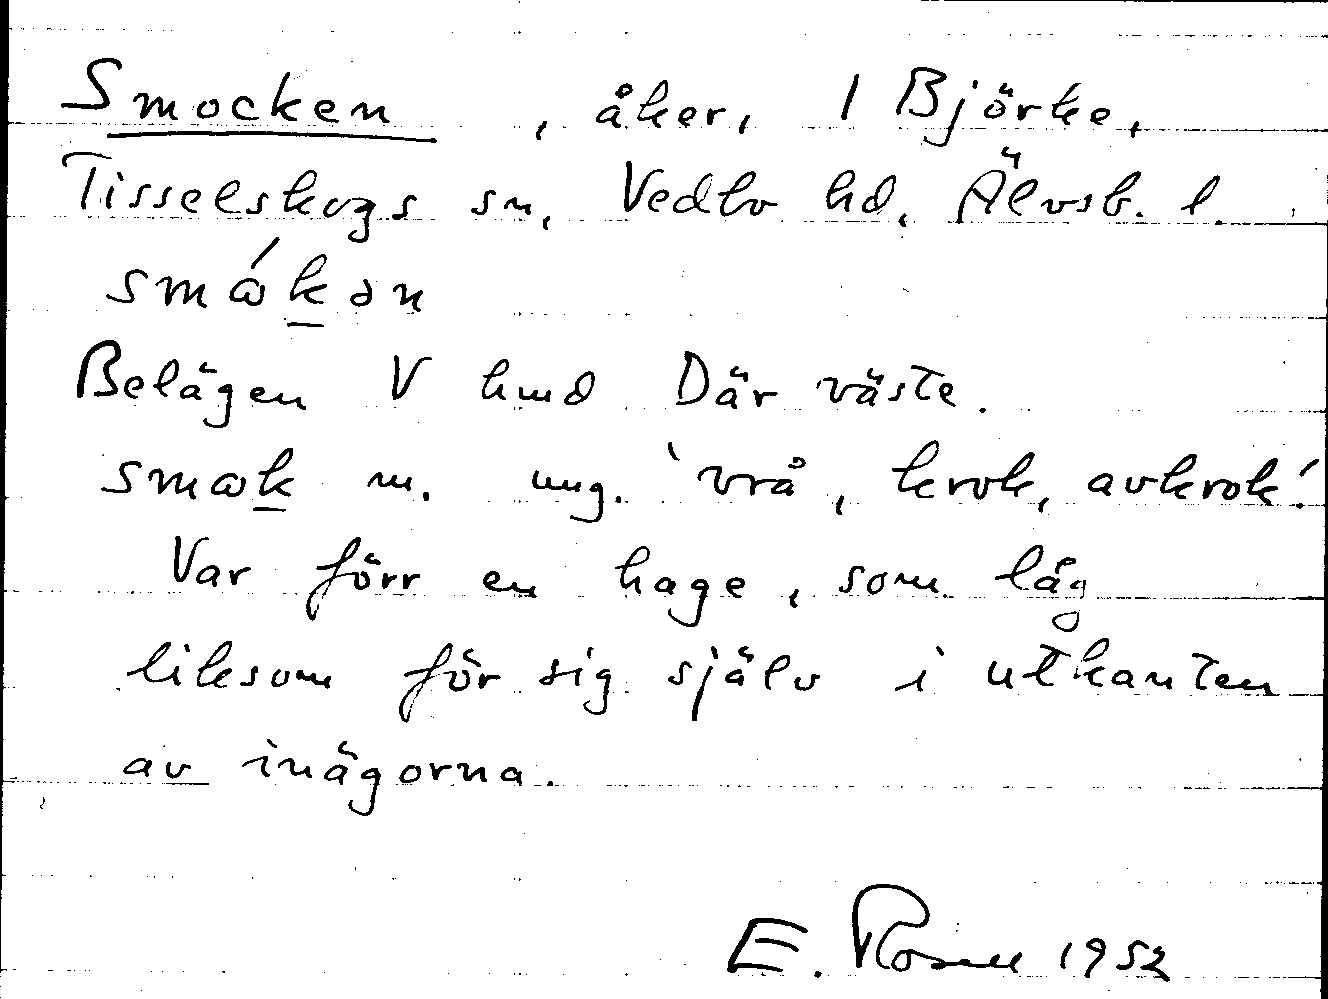 Smocken, åker, 1 Björke,
Tisselskogs sn, Vedbo hd, Älvsb. l.
smɷ́k̲ən
Belägen V hmd Där väste.
smɷk̲ m. ung. 'vrå, krok, avkrok'.
Var förr en hage, som låg
liksom för sig själv i utkanten
av inägorna.
E. Rosell 1952